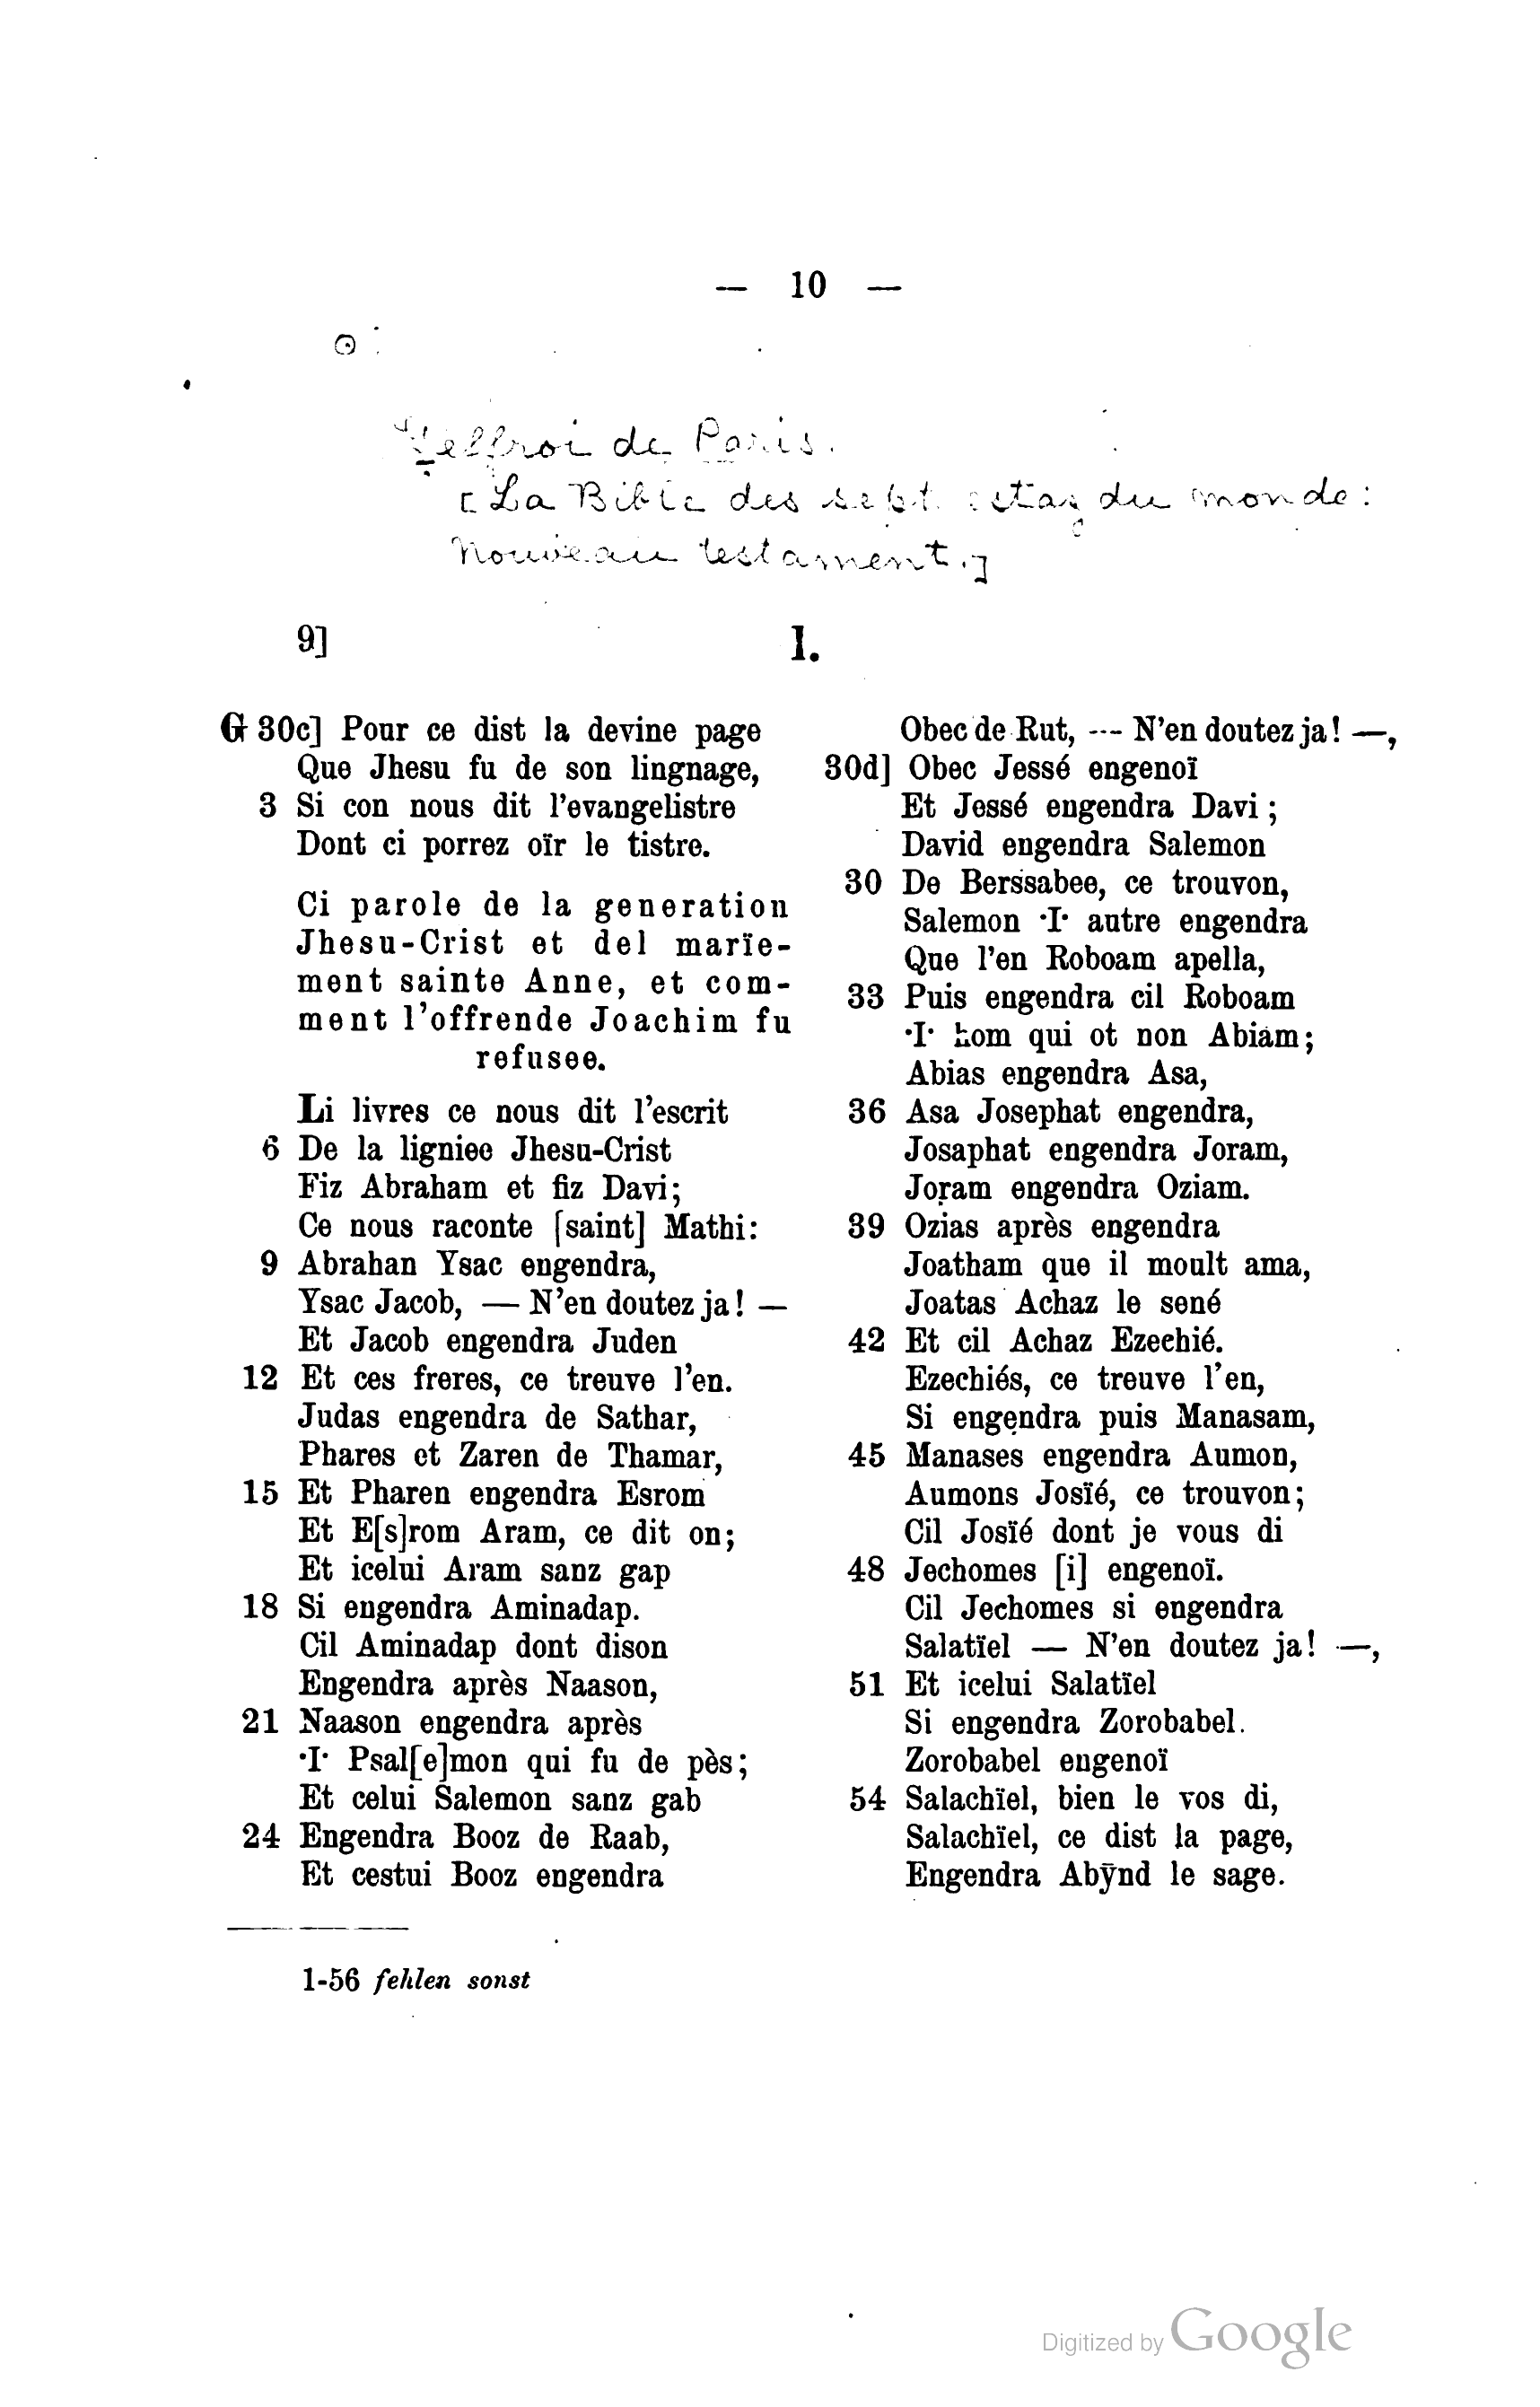 — 10 —
de Paris.
[La Bible des sept estaz du monde:
nouveau testament.]
9] I.
G 30c] Pour ce dist la devine page
Que Jhesu fu de son lingnage,
3 Si con nous dit l'evangelistre
Dont ci porrez oïr le tistre.
Ci parole de la generation
Jhesu-Crist et del marïe-
ment sainte Anne, et com-
ment l'offrende Joachim fu
refusee.
Li livres ce nous dit l'escrit
6 De la ligniee Jhesu-Crist
Fiz Abraham et fiz Davi;
Ce nous raconte [saint] Mathi:
9 Abrahan Ysac engendra,
Ysac Jacob, — N'en doutez ja! —
Et Jacob engendra Juden
12 Et ces freres, ce treuve l'en.
Judas engendra de Sathar,
Phares et Zaren de Thamar,
15 Et Pharen engendra Esrom
Et E[s]rom Aram, ce dit on;
Et icelui Aram sanz gap
18 Si engendra Aminadap.
Cil Aminadap dont dison
Engendra après Naason,
21 Naason engendra après
·I· Psal[e]mon qui fu de pès;
Et celui Salemon sanz gab
24 Engendra Booz de Raab,
Et cestui Booz engendra
Obec de Rut, — N'en doutez ja! —,
30d] Obec Jessé engenoï
Et Jessé engendra Davi;
David engendra Salemon
30 De Berssabee, ce trouvon,
Salemon ·I· autre engendra
Que l'en Roboam apella,
33 Puis engendra cil Roboam
·I· hom qui ot non Abiam;
Abias engendra Asa,
36 Asa Josephat engendra,
Josaphat engendra Joram,
Joram engendra Oziam.
39 Ozias après engendra
Joatham que il moult ama,
Joatas Achaz le sené
42 Et cil Achaz Ezechié.
Ezechiés, ce treuve l'en,
Si engendra puis Manasam,
45 Manases engendra Aumon,
Aumons Josïé, ce trouvon;
Cil Josïé dont je vous di
48 Jechomes [i] engenoï.
Cil Jechomes si engendra
Salatïel — N'en doutez ja! —,
51 Et icelui Salatïel
Si engendra Zorobabel.
Zorobabel engenoï
54 Salachïel, bien le vos di,
Salachïel, ce dist la page,
Engendra Abÿnd le sage.
1-56 fehlen sonst
Digitized by Google